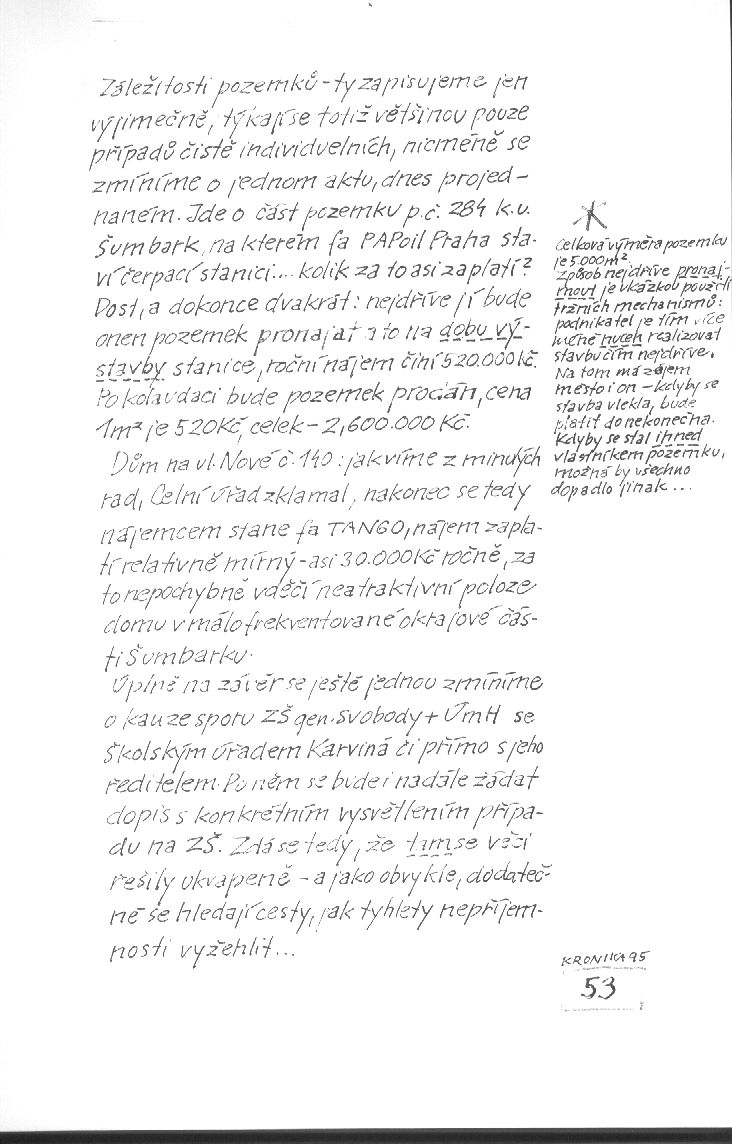 Záležitosti pozemků - ty zapisujeme jen
výjimečně, týkají se totiž většinou pouze
případů čistě individuelních, nicméně se
zmíníme o jednom aktu, dnes projed-
naném. Jde o část pozemku p.č. 284 k.ú.
Šumbark, na kterém fa PAPoil Praha sta-
ví čerpací stanici.... kolik za to asi zaplatí?
Dost, a dokonce dvakrát: nejdříve jí bude
onen pozemek pronajat a to na dobu vý-
stavby stanice, roční nájem činí 520.000 Kč.
Po kolaudaci bude pozemek prodán, cena
1m² je 520Kč, celek - 2,600.000 Kč.
Dům na ul. Nové č. 140: jak víme z minulých
rad, Celní úřad zklamal, nakonec se tedy
nájemcem stane fa TANGO, nájem zapla-
tí relativně mírný - asi 30.000Kč ročně, za
to nepochybně vděčí neatraktivní poloze
domu v málo frekventované okrajové čás-
ti Šumbarku.
Úplně na závěr se ještě jednou zmíníme
o kauze sporu ZŠ gen. Svobody + ÚmH se
Školským úřadem Karviná či přímo s jeho
ředitelem. Po něm se bude i nadále žádat
dopis s konkrétním vysvětlením přípa-
du na ZŠ. Zdá se tedy, že tam se věci
řešily ukvapeně - a jako obvykle, dodateč-
ně se hledají cesty, jak tyhlety nepříjem-
nosti vyžehlit...
*
Celková výměra pozemku
je 5.000m².
Způsob nejdříve pronaj-
mout je ukázkou použití
tržních mechanismů:
podnikatel je tím více
méně nucen realizovat
stavbu čím nejdříve.
Na tom má zájem
město i on - kdyby se
stavba vlekla, bude
platit do nekonečna.
Kdyby se stal ihned
vlastníkem pozemku,
možná by všechno
dopadlo jinak...
KRONIKA 95
53